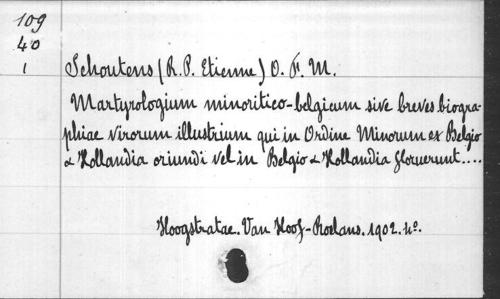 109
40
1
Schoutens (R. P. Etienne) O. F. M.
Martyrologium minoritico-belgicum sive breves biogra-
phiae virorum illustrium qui in Ordine Minorum ex Belgio
& Hollandia oriundi vel in Belgio & Hollandia floruerunt....
Hoogstratae. Van Hoof-Roelans. 1902. 4º.